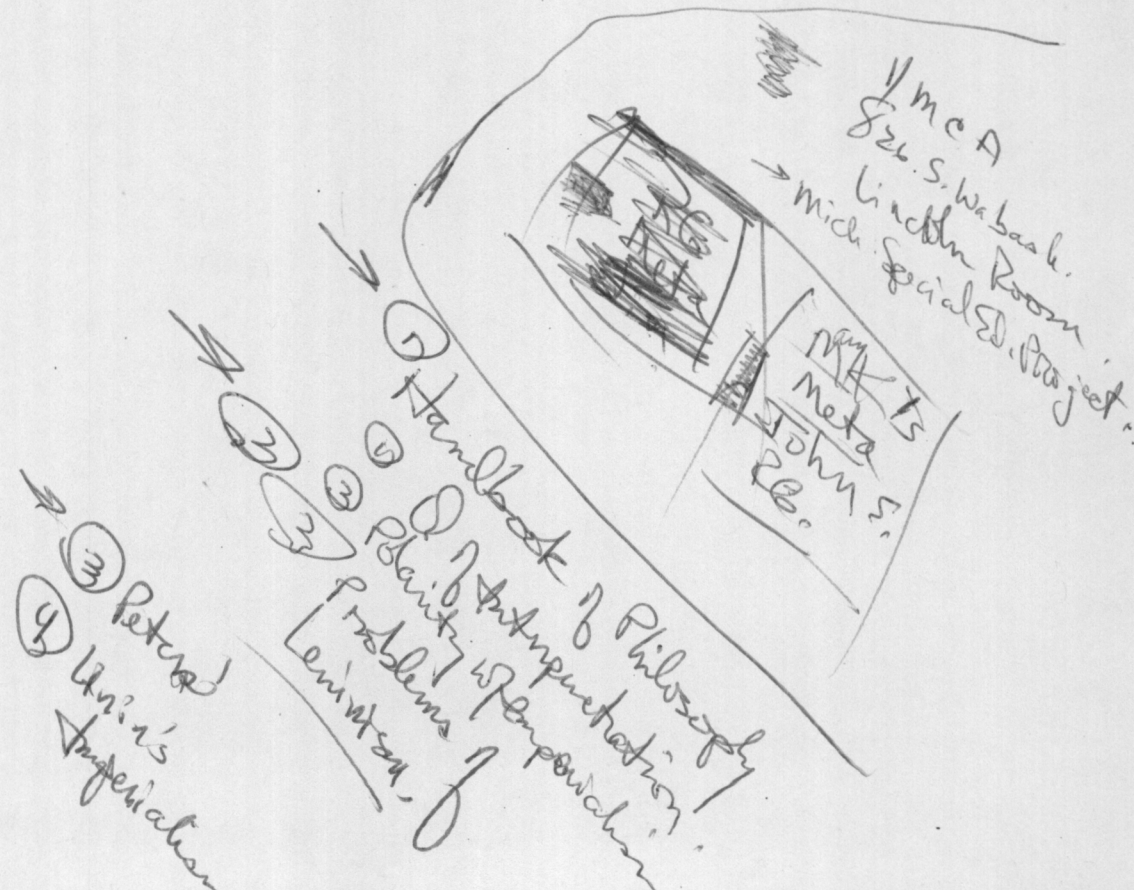 YMCA
826. S. Wabash.
Lincoln Room
→ Mich. Special Ed. Project.
RG
Meta
Meta
John S.
RG.
① Handbook of Philosophy
②
① Q of Interpretation
③
② Polarity of Imperialism
Problems of
Leninism.
③
④ Lenin's
Imperialism